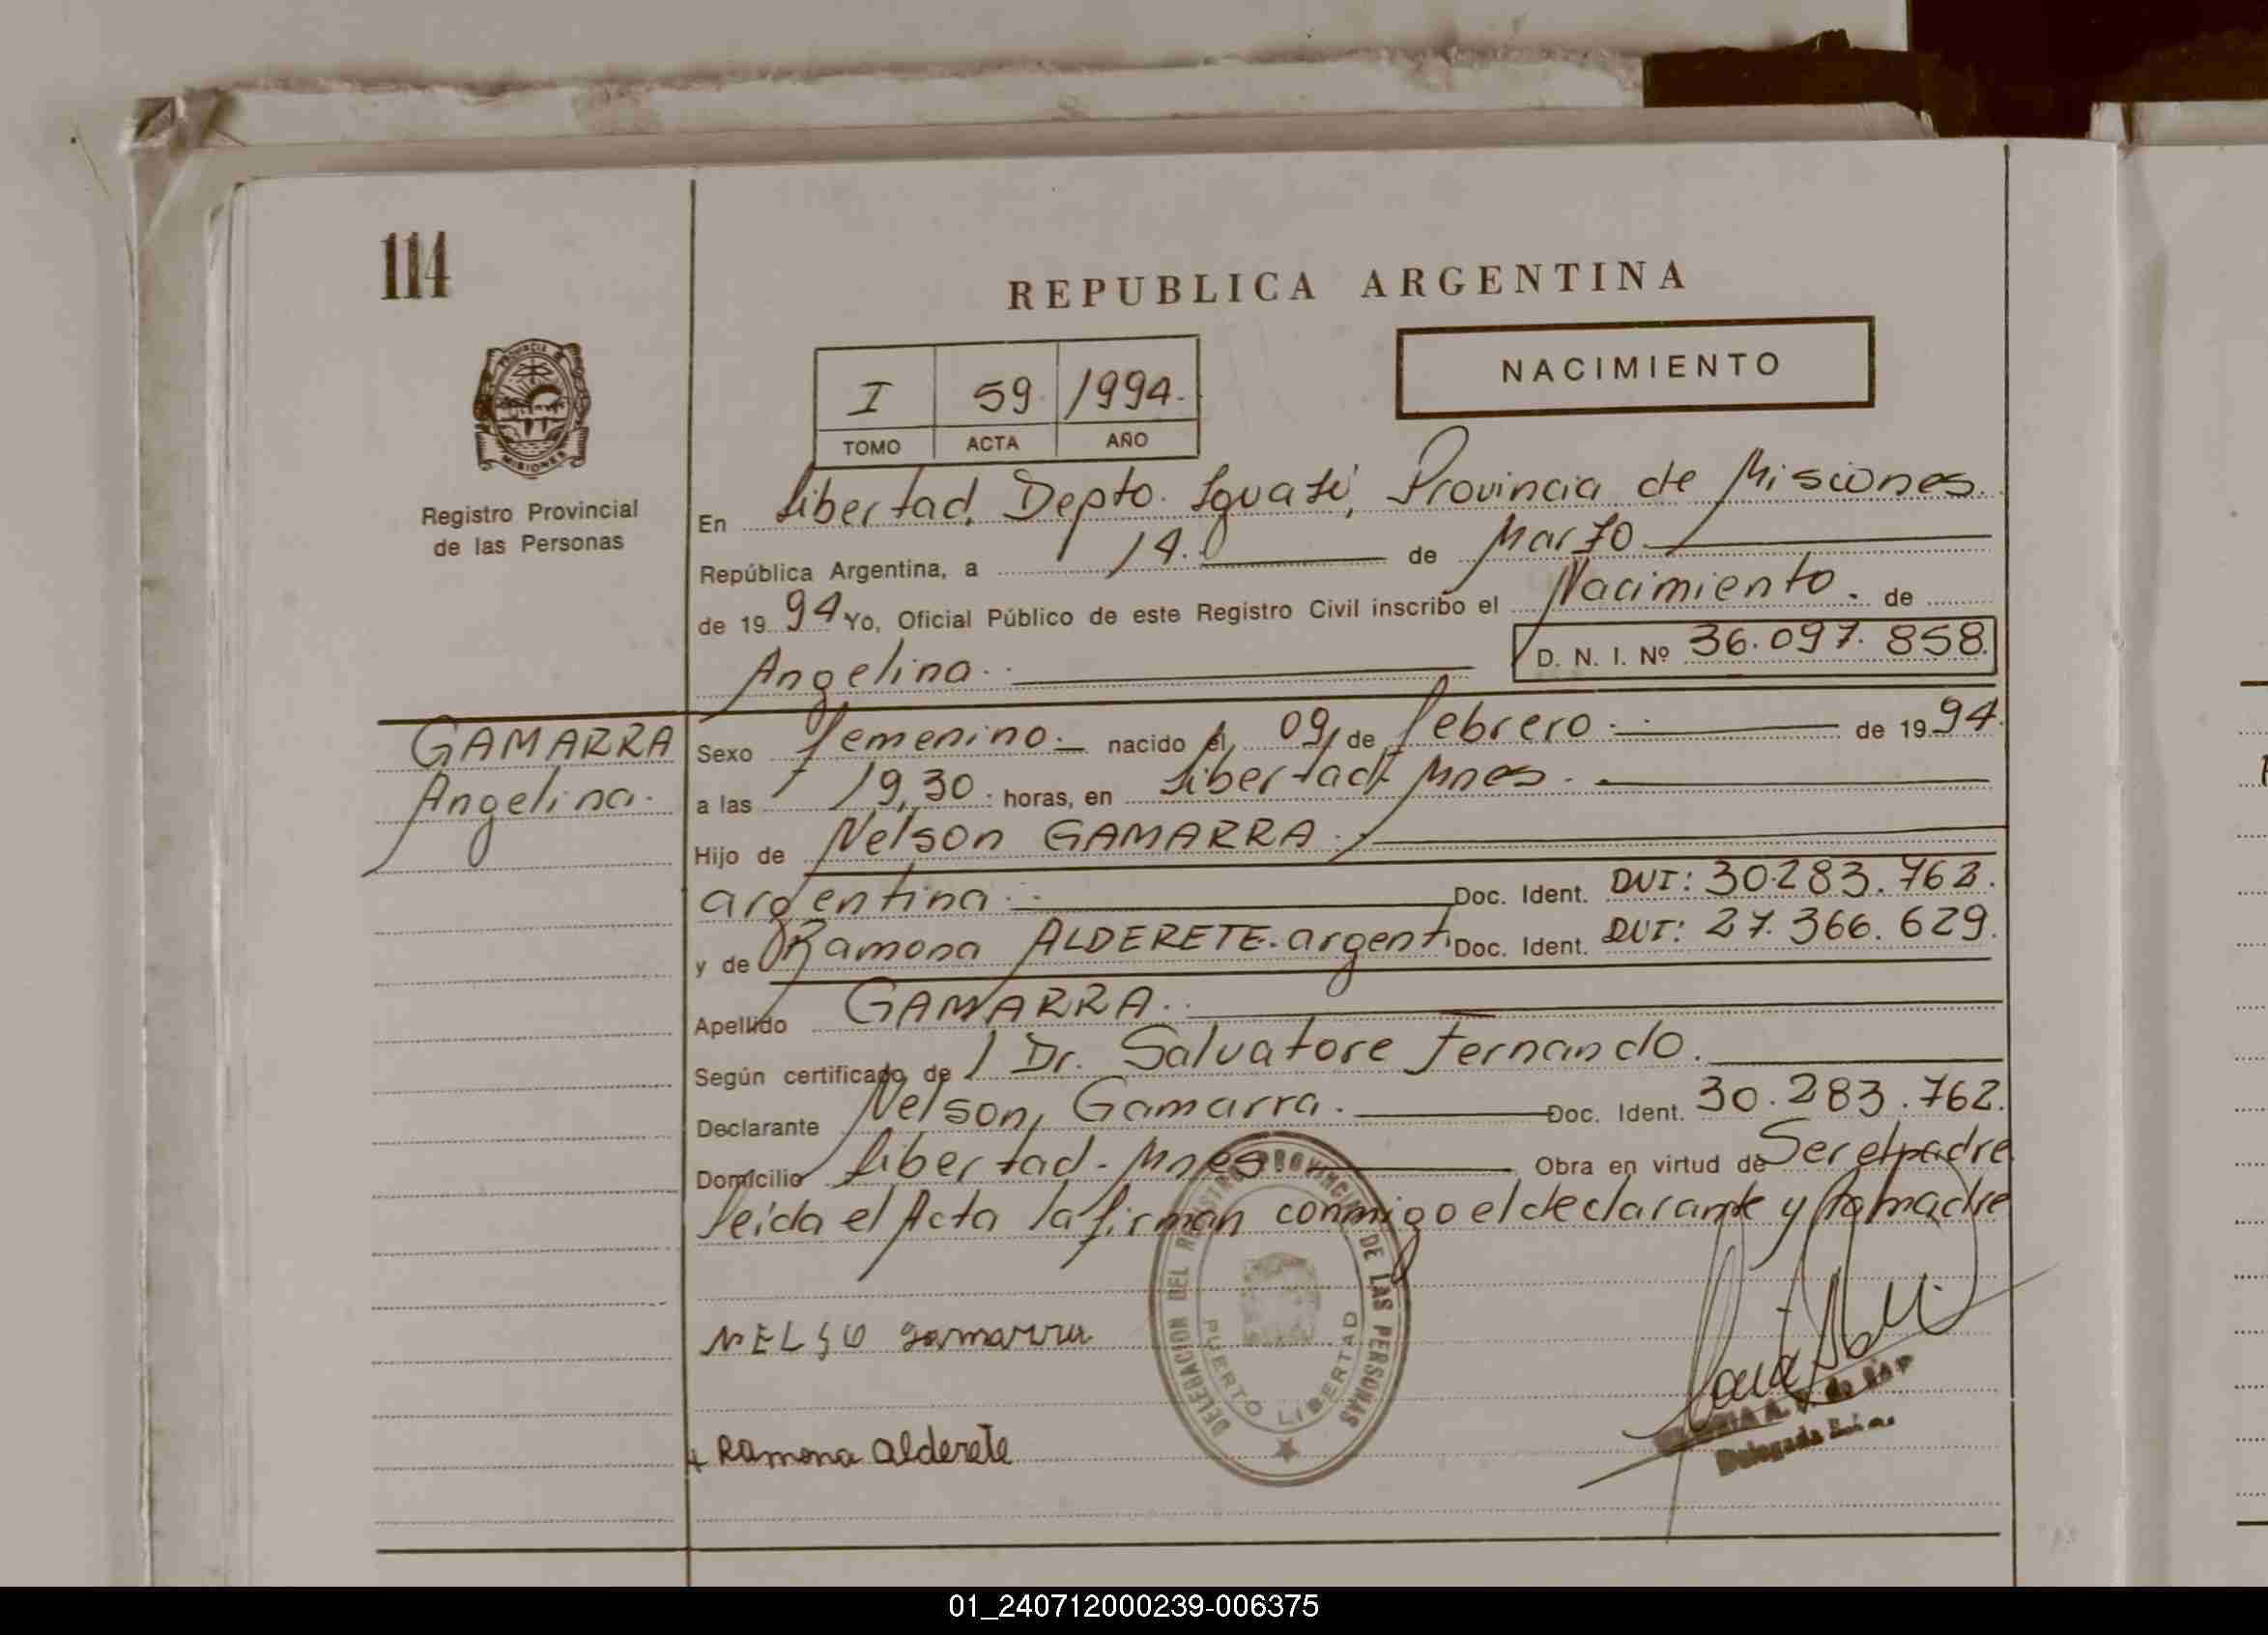 114
REPUBLICA ARGENTINA
NACIMIENTO
I 59. 1994.
TOMO ACTA AÑO
PROVINCIA DE
MISIONES
Registro Provincial
de las Personas
En Libertad, Depto. Iguasú, Provincia de Misiones.
República Argentina, a 14. de Marzo
de 1994 Yo, Oficial Público de este Registro Civil inscribo el Nacimiento. de
Angelina. D. N. I. Nº 36.097.858.
GAMARRA
Angelina.
Sexo femenino. nacido el 09 de febrero. de 1994.
a las 19,30. horas, en Libertad Mnes.
Hijo de Nelson GAMARRA.
argentina. Doc. Ident. DNI: 30.283.762.
y de Ramona ALDERETE. argenti Doc. Ident. DNI: 27.366.629.
Apellido GAMARRA.
Según certificado de Dr. Salvatore Fernando.
Declarante Nelson Gamarra. Doc. Ident. 30.283.762.
Domicilio Libertad - Mnes. Obra en virtud de Ser el padre
leída el Acta la firman conmigo el declarante y la madre
NELSO gamarra
DELEGACION DEL REGISTRO PROVINCIAL DE LAS PERSONAS
PUERTO LIBERTAD
Ramona alderete
Delegada
01_240712000239-006375